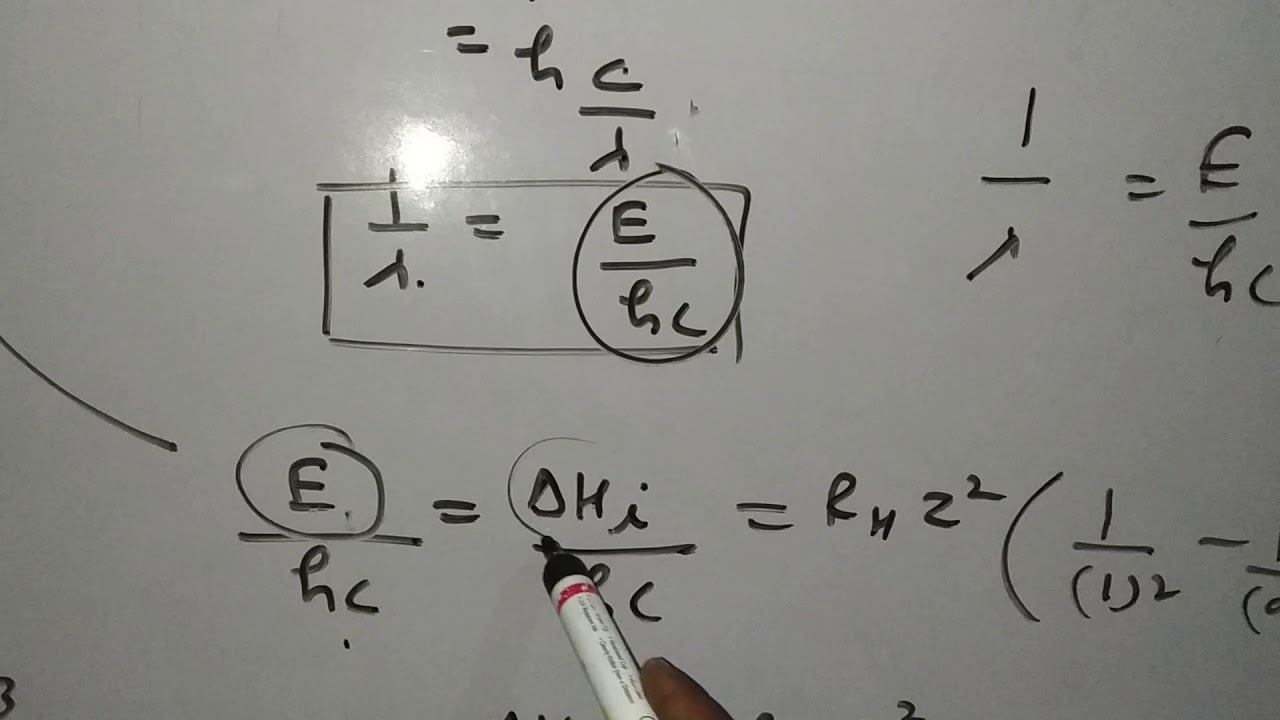 = h c/λ
1/λ = E/hc
1/λ = E/hc
E/hc = ΔHi/hc = R_H z² (1/(1)² -